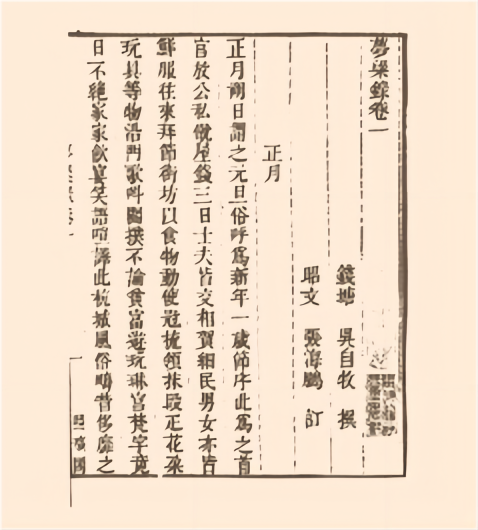 夢粱錄卷一
錢塘 吳自牧 撰
昭文 張海鵬 訂
正月
正月朔日謂之元旦俗呼爲新年一歲節序此爲之首
官放公私僦屋錢三日士夫皆交相賀細民男女亦皆
鮮服往來拜節街坊以食物動使冠梳領抹段疋花朶
玩具等物沿門歌呌關撲不論貧富遊玩琳宮梵宇竟
日不絕家家飲宴笑語喧譁此杭城風俗疇昔侈靡之